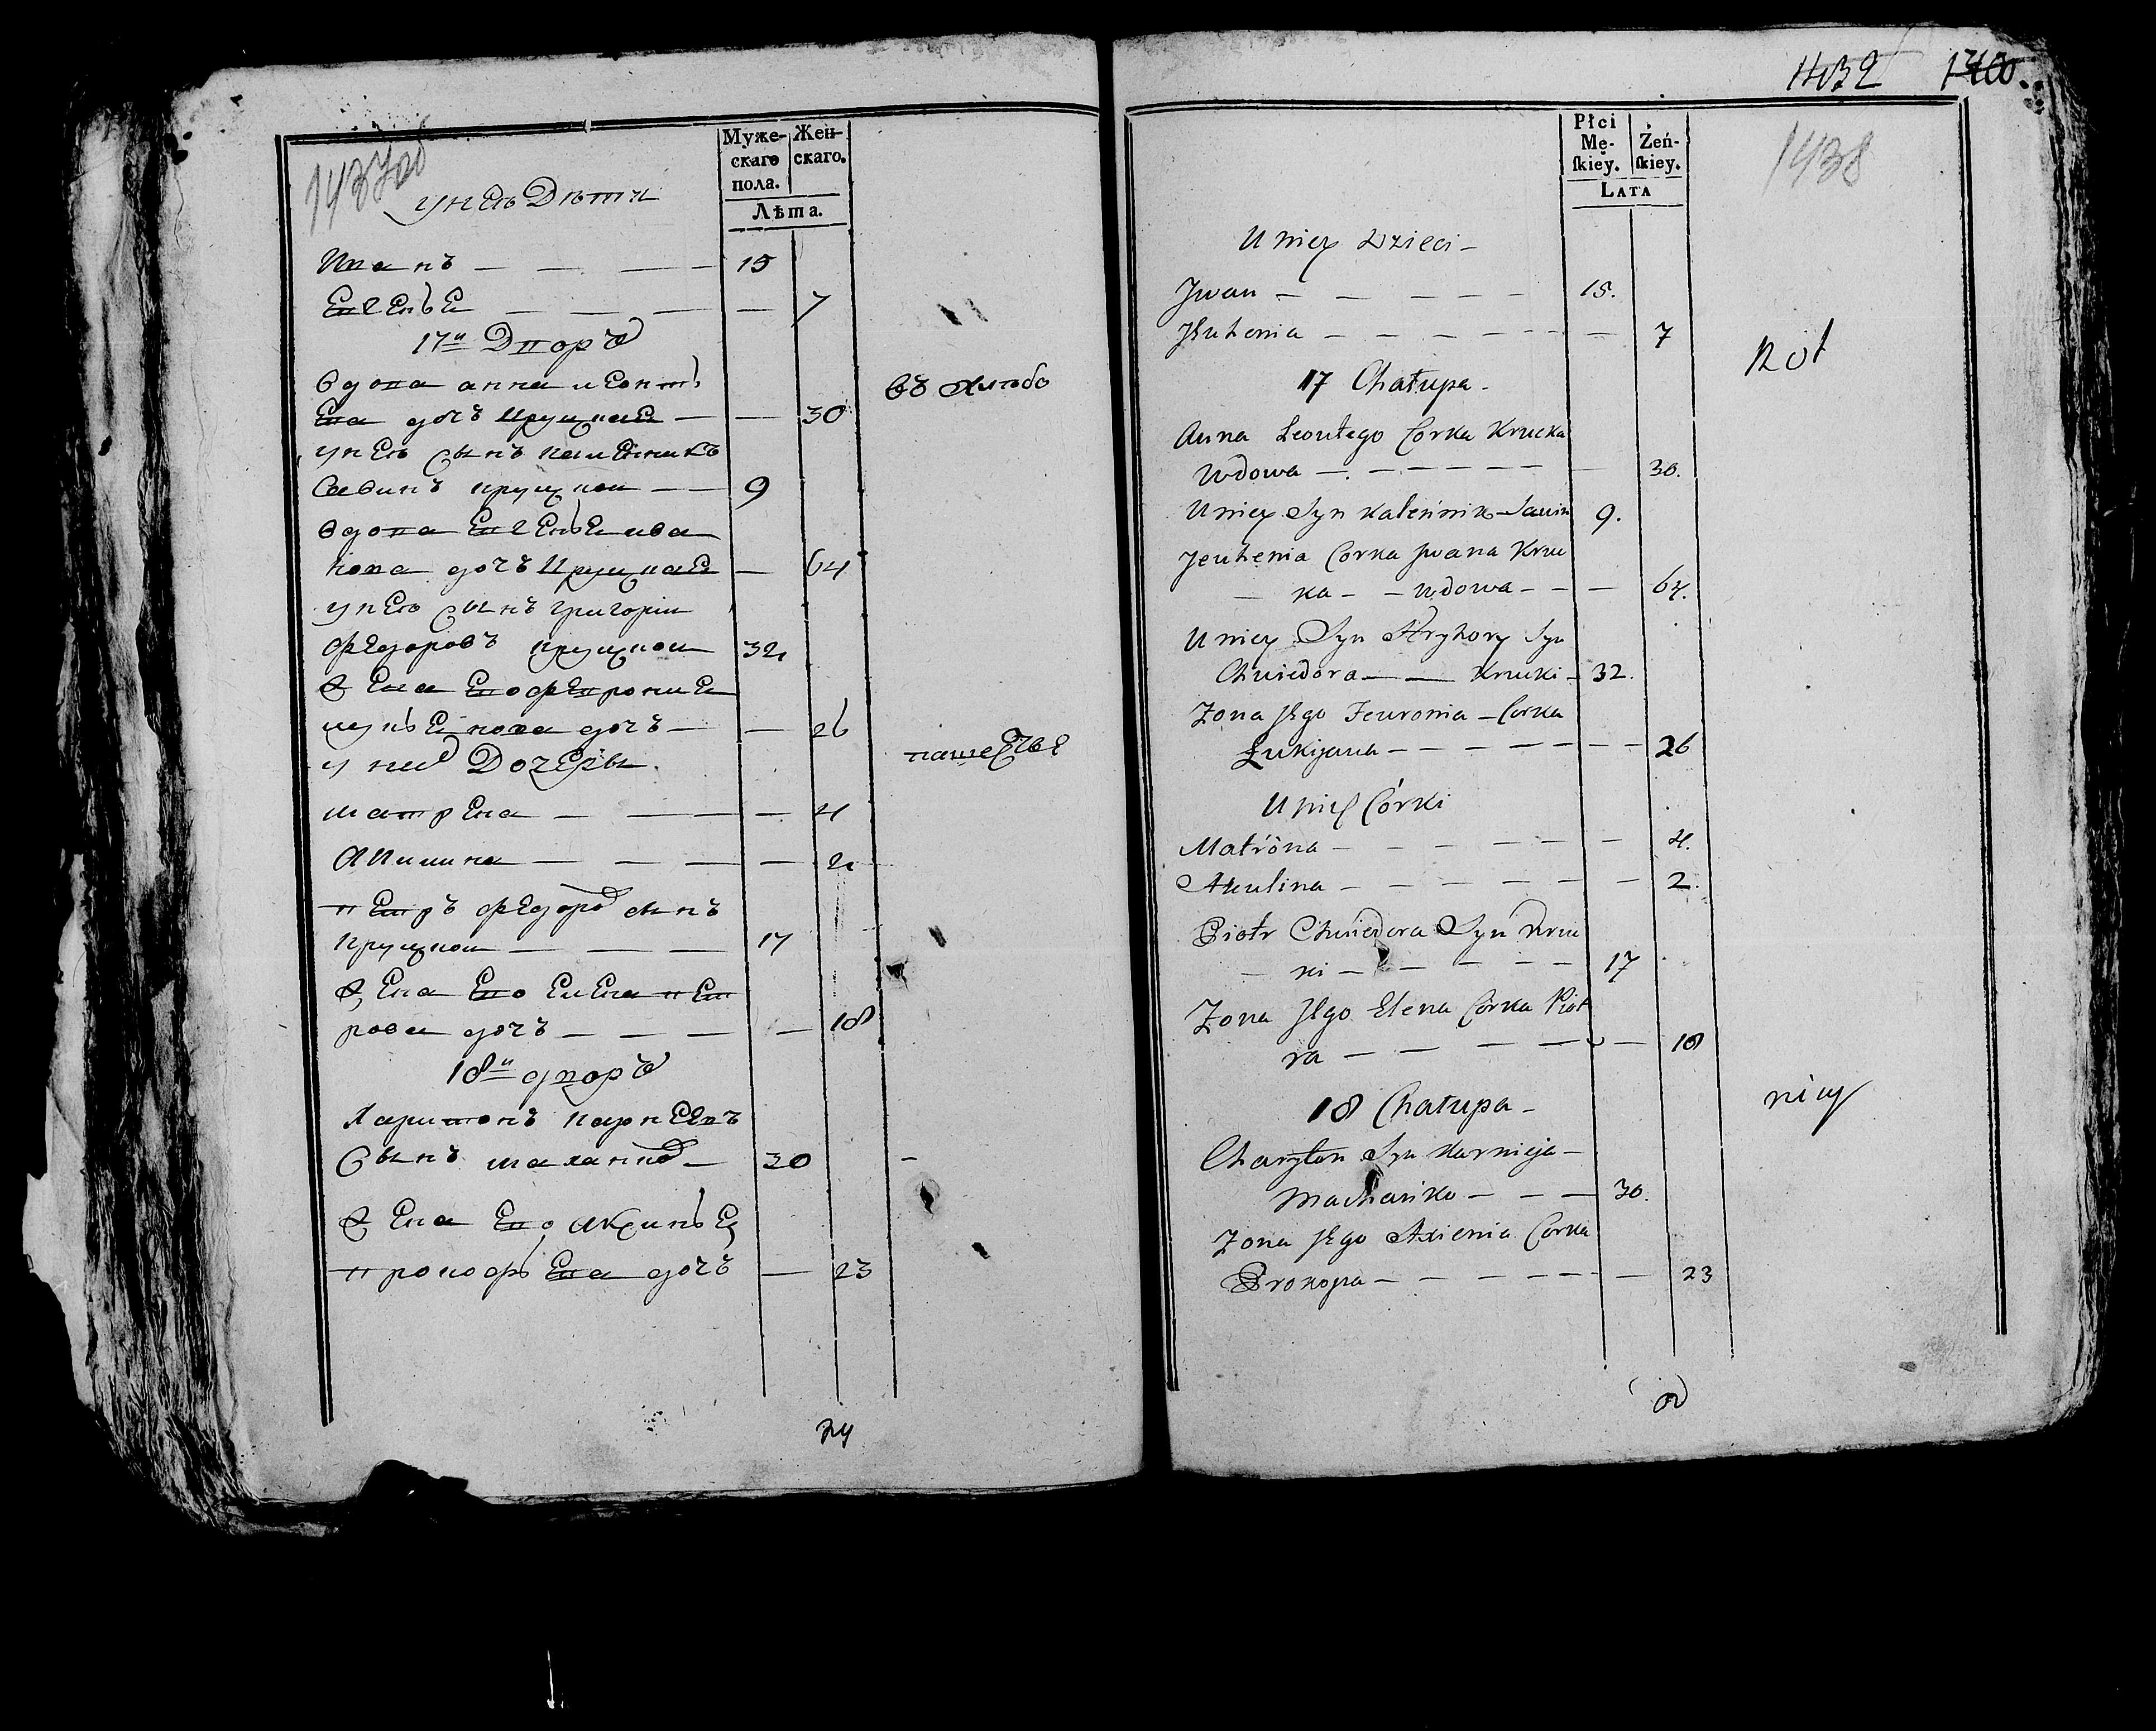 1437об
Муже-
скаго
пола.
Жен-
скаго.
Лѣта.
у неи Дѣти
Иванъ — — — — 15
Евгенья — — — — 7
17й Дворъ
вдова анна леонть
ева дочь Круцкая — — 30
у неи сынъ калѣника
Савинъ круцкои — — 9
вдова Евгенья ива
нова дочь Круцкая — 64
у неи сынъ григорiи
Федоровъ круцкои 32
Жена Ево феврония
лукьенова дочь — — 26
у ней Дочери
матрена — — — — 4
Акилина — — — — 2
петръ Федоров сынъ
круцкои — — — 17
Жена Ево Елена пет
рова дочь — — — — 18
18й дворъ
Харитонъ карнеевъ
Сынъ маханко — 30
Жена Ево Аксинья
прокофьева дочь — 23
въ хлѣбо
пашества
Płci
Mę-
ſkiey.
Żeń-
ſkiey.
LATA
1432 1400
1438
U niey Dzieci —
Jwan — — — — — 15.
Jeuhenia — — — — — — 7
17 Chałupa —
Anna Leontego Corka Krucka
Wdowa — — — — — — — 30.
U niey Syn Kaleńnik Sawin 9.
Jeuhenia Corka Jwana Kru
— ka — — wdowa — — — 64.
U niey Syn Hryhory Syn
Chwiedora — — Kruki — 32.
Zona Jego Feuronia — Corka
Łukijana — — — — — — — 26
U niey Córki
Matróna — — — — — — 4.
Akulina — — — — — — 2.
Piotr Chwiedora Syn Kru
— ki — — — — — 17
Zona Jego Elena Córka Piot
ra — — — — — — 18
18 Chałupa —
Charyton Syn Karnieja —
Machańko — — — 30.
Zona Jego Axienia Corka
Prokopa — — — — — — 23
Rol
niczy